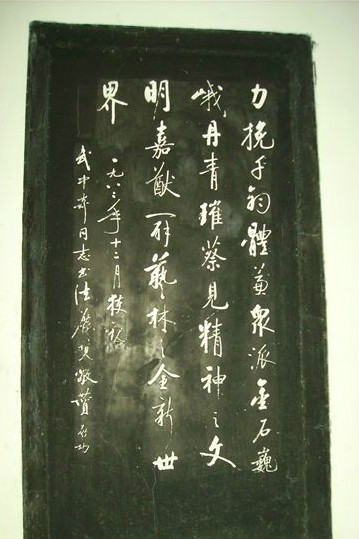 力挽千鈞體兼眾派金石巍
峨丹青璀璨見精神之文
明嘉猷一辟藝林之全新世
界
一九八年十二月獲
武中奇同志書法展覽敬贊 启功